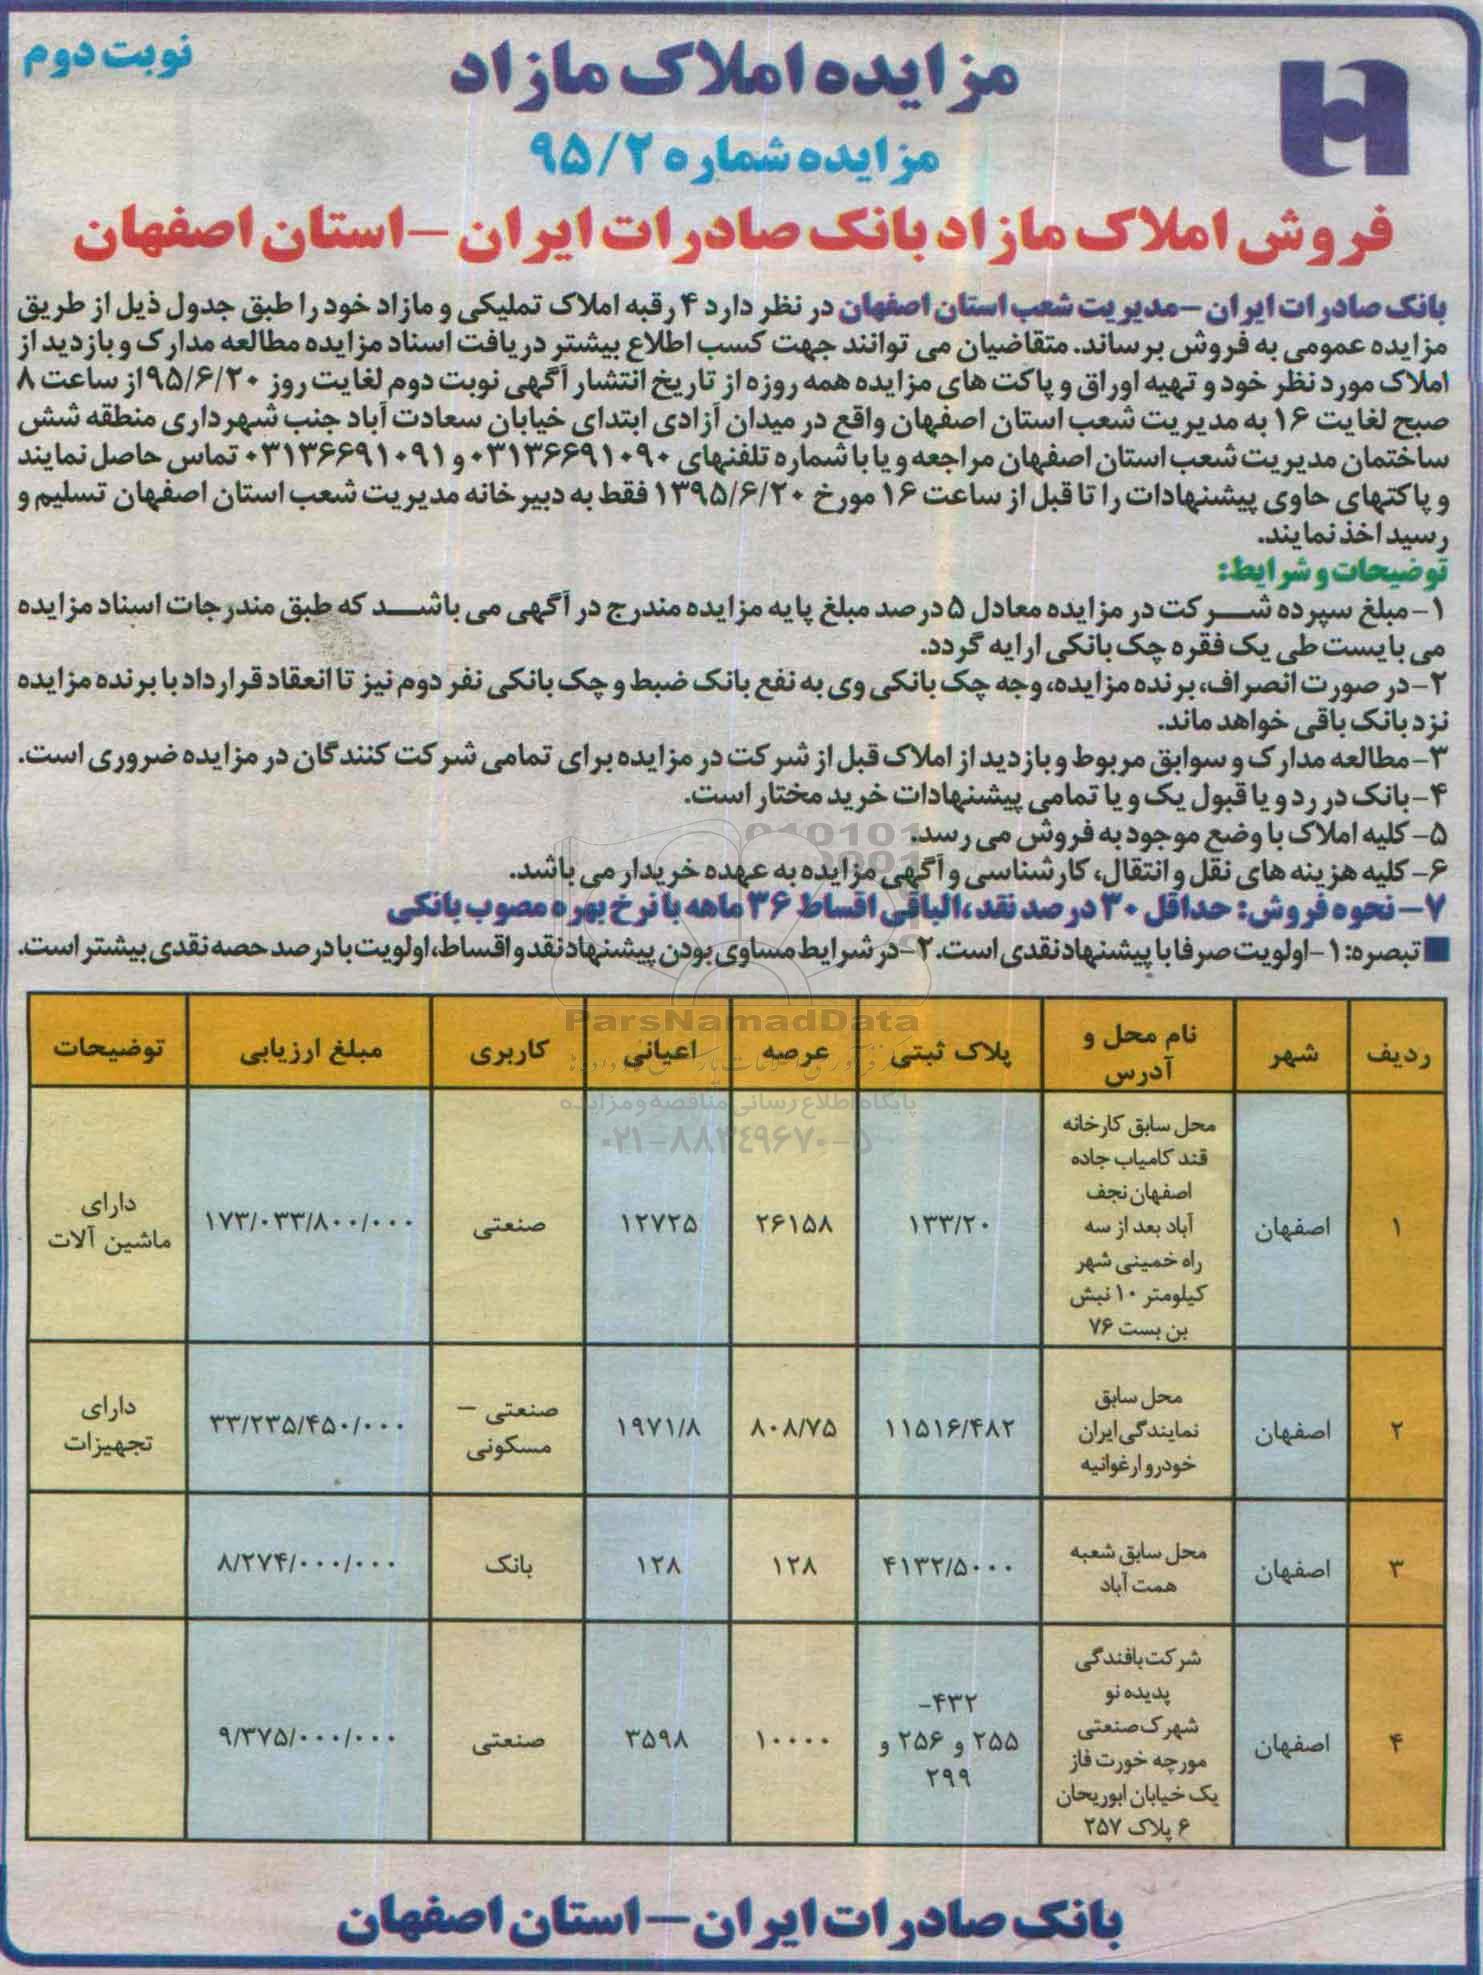 نوبت دوم
مزایده املاک مازاد
مزایده شماره ۹۵/۲
فروش املاک مازاد بانک صادرات ایران -استان اصفهان
بانک صادرات ایران -مدیریت شعب استان اصفهان در نظر دارد ۴ رقبه املاک تملیکی و مازاد خود را طبق جدول ذیل از طریق
مزایده عمومی به فروش برساند. متقاضیان می توانند جهت کسب اطلاع بیشتر دریافت اسناد مزایده مطالعه مدارک و بازدید از
املاک مورد نظر خود و تهیه اوراق و پاکت های مزایده همه روزه از تاریخ انتشار آگهی نوبت دوم لغایت روز ۹۵/۶/۲۰ از ساعت ۸
صبح لغایت ۱۶ به مدیریت شعب استان اصفهان واقع در میدان آزادی ابتدای خیابان سعادت آباد جنب شهرداری منطقه شش
ساختمان مدیریت شعب استان اصفهان مراجعه و یا با شماره تلفنهای ۰۳۱۳۶۶۹۱۰۹۰ و ۰۳۱۳۶۶۹۱۰۹۱ تماس حاصل نمایند
و پاکتهای حاوی پیشنهادات را تا قبل از ساعت ۱۶ مورخ ۱۳۹۵/۶/۲۰ فقط به دبیرخانه مدیریت شعب استان اصفهان تسلیم و
رسید اخذ نمایند.
توضیحات و شرایط:
۱- مبلغ سپرده شرکت در مزایده معادل ۵ درصد مبلغ پایه مزایده مندرج در آگهی می باشد که طبق مندرجات اسناد مزایده
می بایست طی یک فقره چک بانکی ارایه گردد.
۲- در صورت انصراف، برنده مزایده، وجه چک بانکی وی به نفع بانک ضبط و چک بانکی نفر دوم نیز تا انعقاد قرارداد با برنده مزایده
نزد بانک باقی خواهد ماند.
۳- مطالعه مدارک و سوابق مربوط و بازدید از املاک قبل از شرکت در مزایده برای تمامی شرکت کنندگان در مزایده ضروری است.
۴- بانک در رد و یا قبول یک و یا تمامی پیشنهادات خرید مختار است.
۵- کلیه املاک با وضع موجود به فروش می رسد.
۶- کلیه هزینه های نقل و انتقال، کارشناسی و آگهی مزایده به عهده خریدار می باشد.
۷- نحوه فروش: حداقل ۳۰ درصد نقد، الباقی اقساط ۳۶ ماهه با نرخ بهره مصوب بانکی
تبصره: ۱- اولویت صرفا با پیشنهاد نقدی است. ۲- در شرایط مساوی بودن پیشنهاد نقد و اقساط، اولویت با درصد حصه نقدی بیشتر است.
ردیف شهر نام محل و آدرس پلاک ثبتی عرصه اعیانی کاربری مبلغ ارزیابی توضیحات
۱ اصفهان محل سابق کارخانه قند کامیاب جاده اصفهان نجف آباد بعد از سه راه خمینی شهر کیلومتر ۱۰ نبش بن بست ۷۶ ۱۳۳/۲۰ ۲۶۱۵۸ ۱۲۷۲۵ صنعتی ۱۷۳/۰۳۳/۸۰۰/۰۰۰ دارای ماشین آلات
۲ اصفهان محل سابق نمایندگی ایران خودرو ارغوانیه ۱۱۵۱۶/۴۸۲ ۸۰۸/۷۵ ۱۹۷۱/۸ صنعتی - مسکونی ۳۳/۲۳۵/۴۵۰/۰۰۰ دارای تجهیزات
۳ اصفهان محل سابق شعبه همت آباد ۴۱۳۲/۵۰۰۰ ۱۲۸ ۱۲۸ بانک ۸/۲۷۴/۰۰۰/۰۰۰
۴ اصفهان شرکت بافندگی پدیده نو شهرک صنعتی مورچه خورت فاز یک خیابان ابوریحان ۶ پلاک ۲۵۷ ۴۳۲- ۲۵۵ و ۲۵۶ و ۲۹۹ ۱۰۰۰۰ ۳۵۹۸ صنعتی ۹/۳۷۵/۰۰۰/۰۰۰
ParsNamadData
پایگاه اطلاع رسانی مناقصه و مزایده
۰۲۱-۸۸۳۴۹۶۷۰-۵
بانک صادرات ایران - استان اصفهان